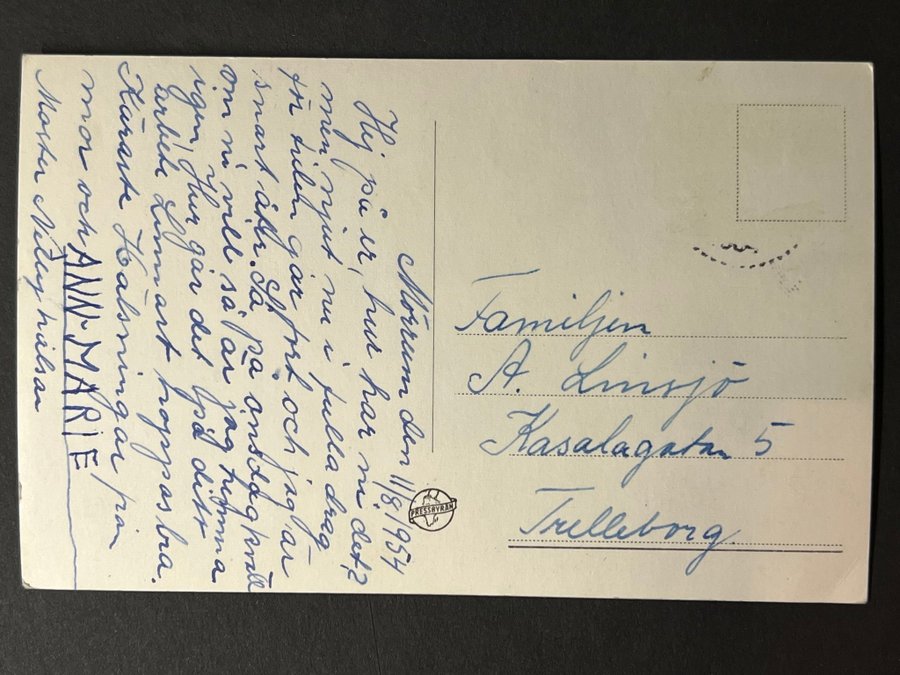 Mörrum den 11/8/1954
Hej på er, hur har ni det?
men njut nu i fulla drag
för tiden går fort och jag är
snart åter. Så på onsdag kväll
om ni vill så är jag hemma
igen, Hur går det på ditt
arbete Lennart hoppas bra.
Käraste Hälsningar från
mor och ANN-MARIE
Moster Nelly hälsar
Familjen
A. Linsjö
Kasalagatan 5
Trelleborg.
PRESSBYRÅN